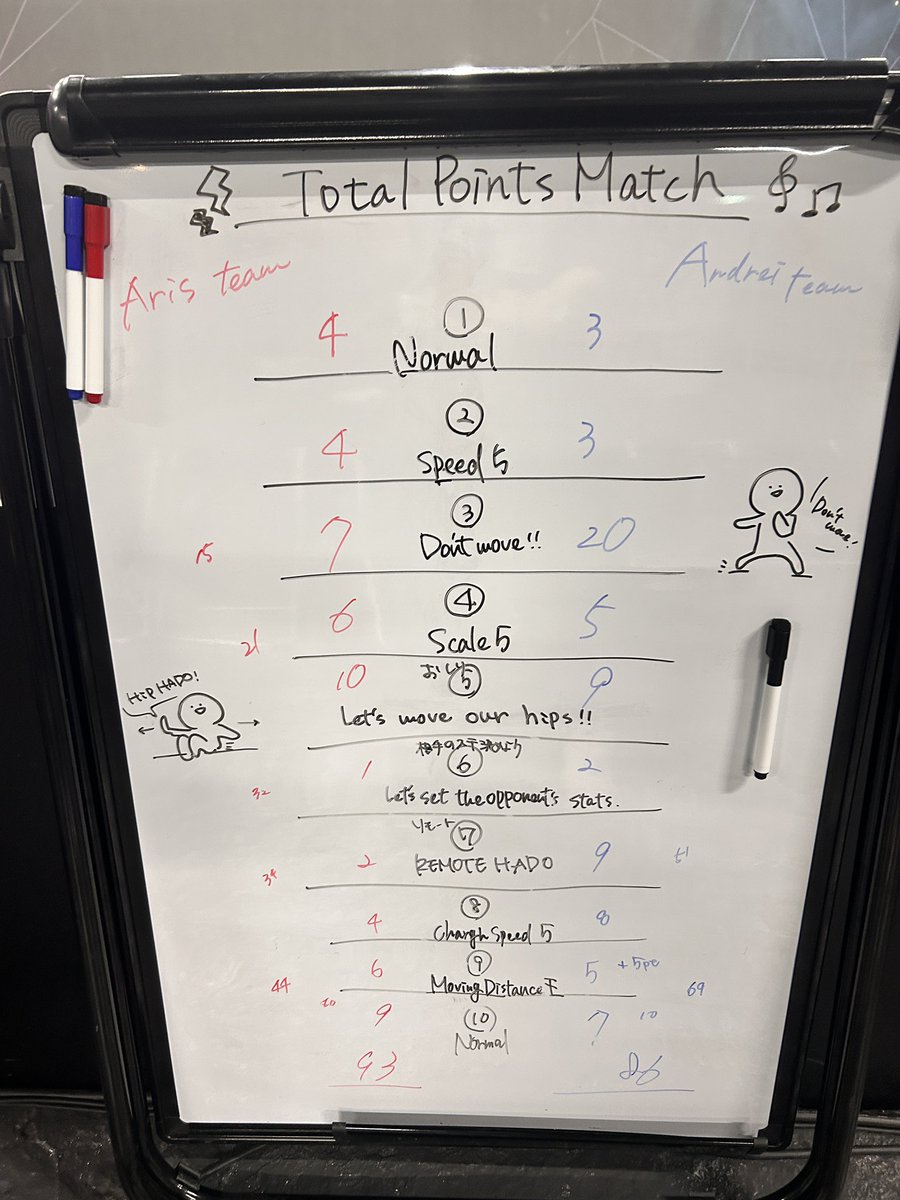 Total Points Match
Aris team
Andrei team
4 ① 3
Normal
4 ② 3
Speed 5
15 7 ③ 20
Don't move!!
Don't move!
21 6 ④ 5
Scale 5
おしり
10 ⑤ 9
HIP HADO!
Let's move our hips!!
1 ⑥ 2
32 Let's set the opponent's stats.
リモート
⑦
34 2 REMOTE HADO 9 51
⑧
4 Chargh Speed 5 8
6 ⑨ 5 +5pc
44 Moving Distance 69
10 9 ⑩ 7 10
Normal
93 86